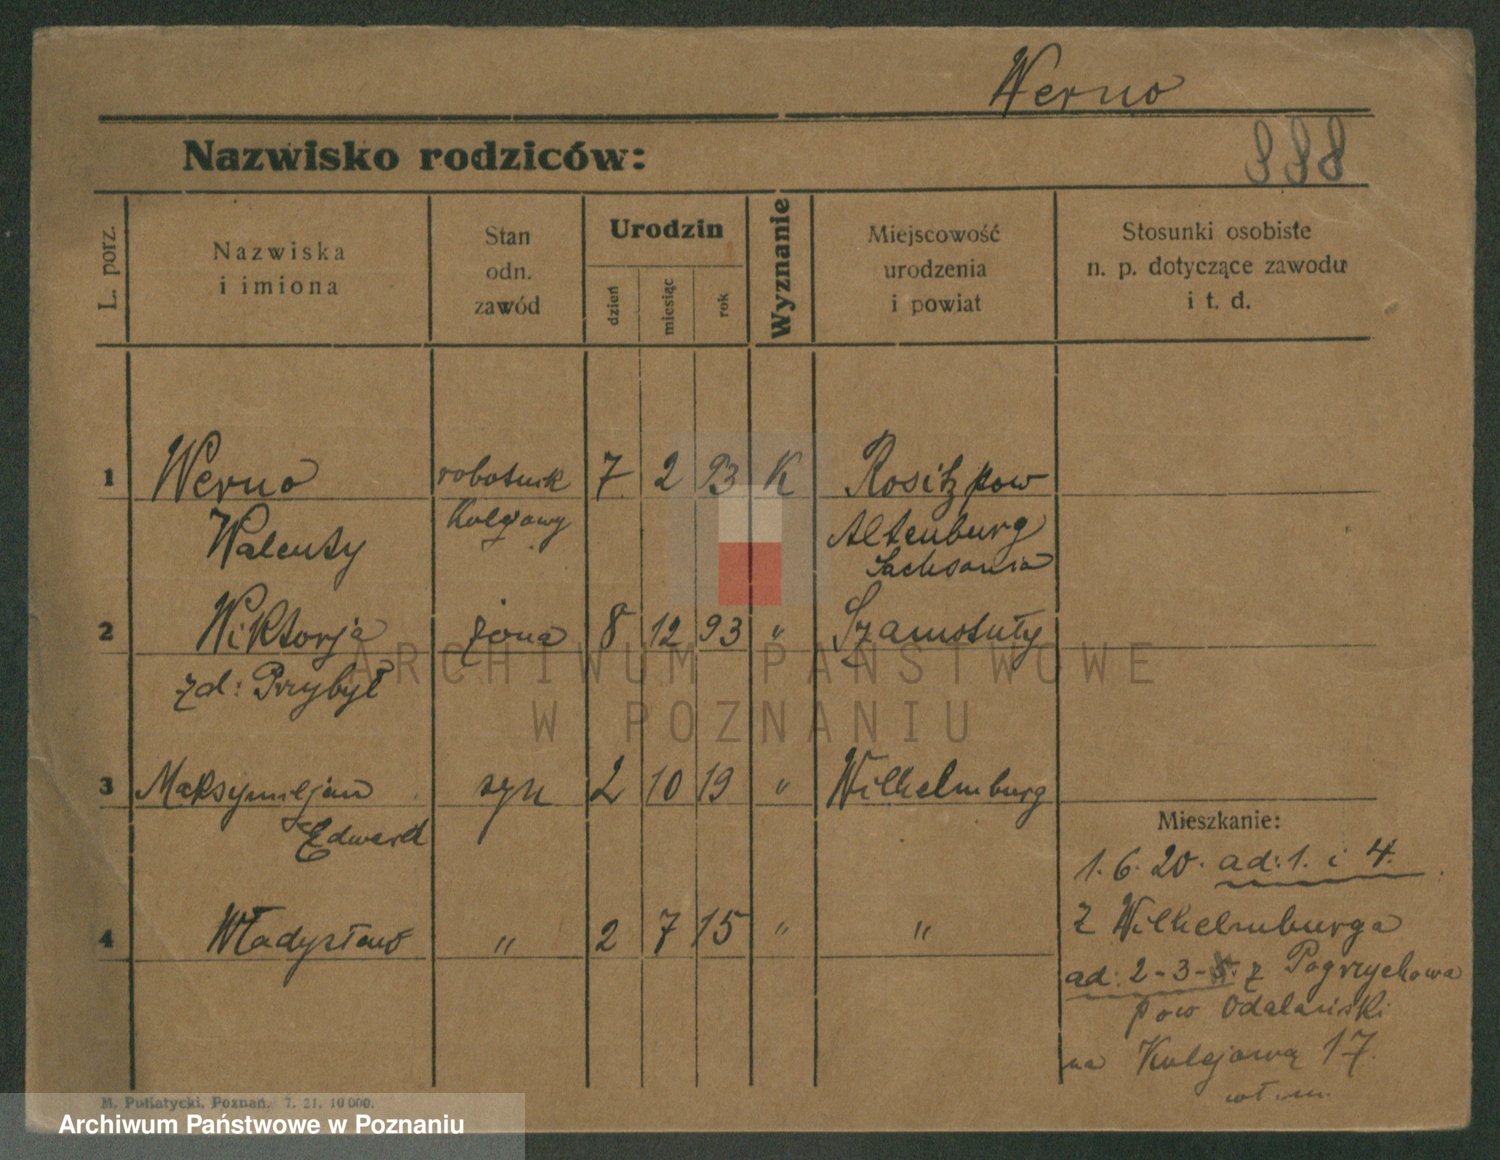 Werno
Nazwisko rodziców:
338
L. porz.
Nazwiska
i imiona
Stan
odn.
zawód
Urodzin
dzień
miesiąc
rok
Wyznanie
Miejscowość
urodzenia
i powiat
Stosunki osobiste
n. p. dotyczące zawodu
i t. d.
1 Werno robotnik 7 2 93 K Rositz pow
Walenty Kolejowy Altenburg
Sachsonia
2 Wiktorja żona 8 12 93 " Szamotuły
zd: Przybył
3 Maksymiljan syn 2 10 19 " Wilhelmburg
Edward
4 Władysław " 2 7 15 " "
Mieszkanie:
1. 6. 20. ad: 1. i 4.
z Wilhelmburga
ad: 2-3- z Pogrzybowa
pow Odalański
na Kolejową 17.
M. Putiatycki, Poznań. 7. 21. 10 000.
ARCHIWUM PAŃSTWOWE
W POZNANIU
Archiwum Państwowe w Poznaniu